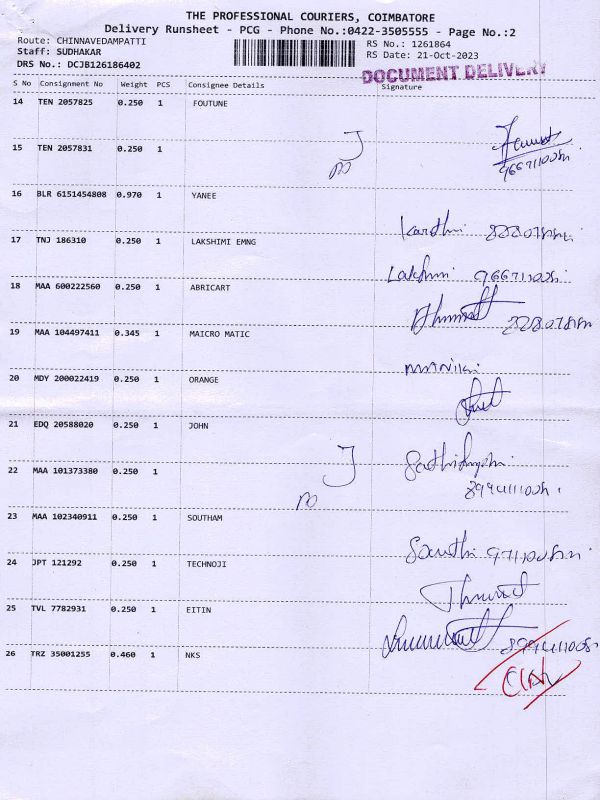 THE PROFESSIONAL COURIERS, COIMBATORE
Delivery Runsheet - PCG - Phone No.:0422-3505555 - Page No.:2
Route: CHINNAVEDAMPATTI RS No.: 1261864
Staff: SUDHAKAR RS Date: 21-Oct-2023
DRS No.: DCJB126186402
DOCUMENT DELIVERY
S No Consignment No Weight PCS Consignee Details Signature
14 TEN 2057825 0.250 1 FOUTUNE
15 TEN 2057831 0.250 1
16 BLR 6151454808 0.970 1 YANEE
Karthi
17 TNJ 186310 0.250 1 LAKSHIMI EMNG
Lakshmi
18 MAA 600222560 0.250 1 ABRICART
19 MAA 104497411 0.345 1 MAICRO MATIC
20 MDY 200022419 0.250 1 ORANGE
21 EDQ 20588020 0.250 1 JOHN
22 MAA 101373380 0.250 1
23 MAA 102340911 0.250 1 SOUTHAM
24 JPT 121292 0.250 1 TECHNOJI
25 TVL 7782931 0.250 1 EITIN
26 TRZ 35001255 0.460 1 NKS